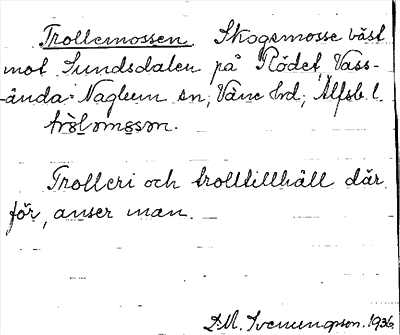 Trollemossen. Skogsmosse väst
mot Sundsdalen på Rödet, Vass-
ända-Naglum sn, Väne hd, Älfsb. l.
tròlomosson.
Trolleri och trolltillhåll där
för, anser man.
D.M. Svenungsson. 1936